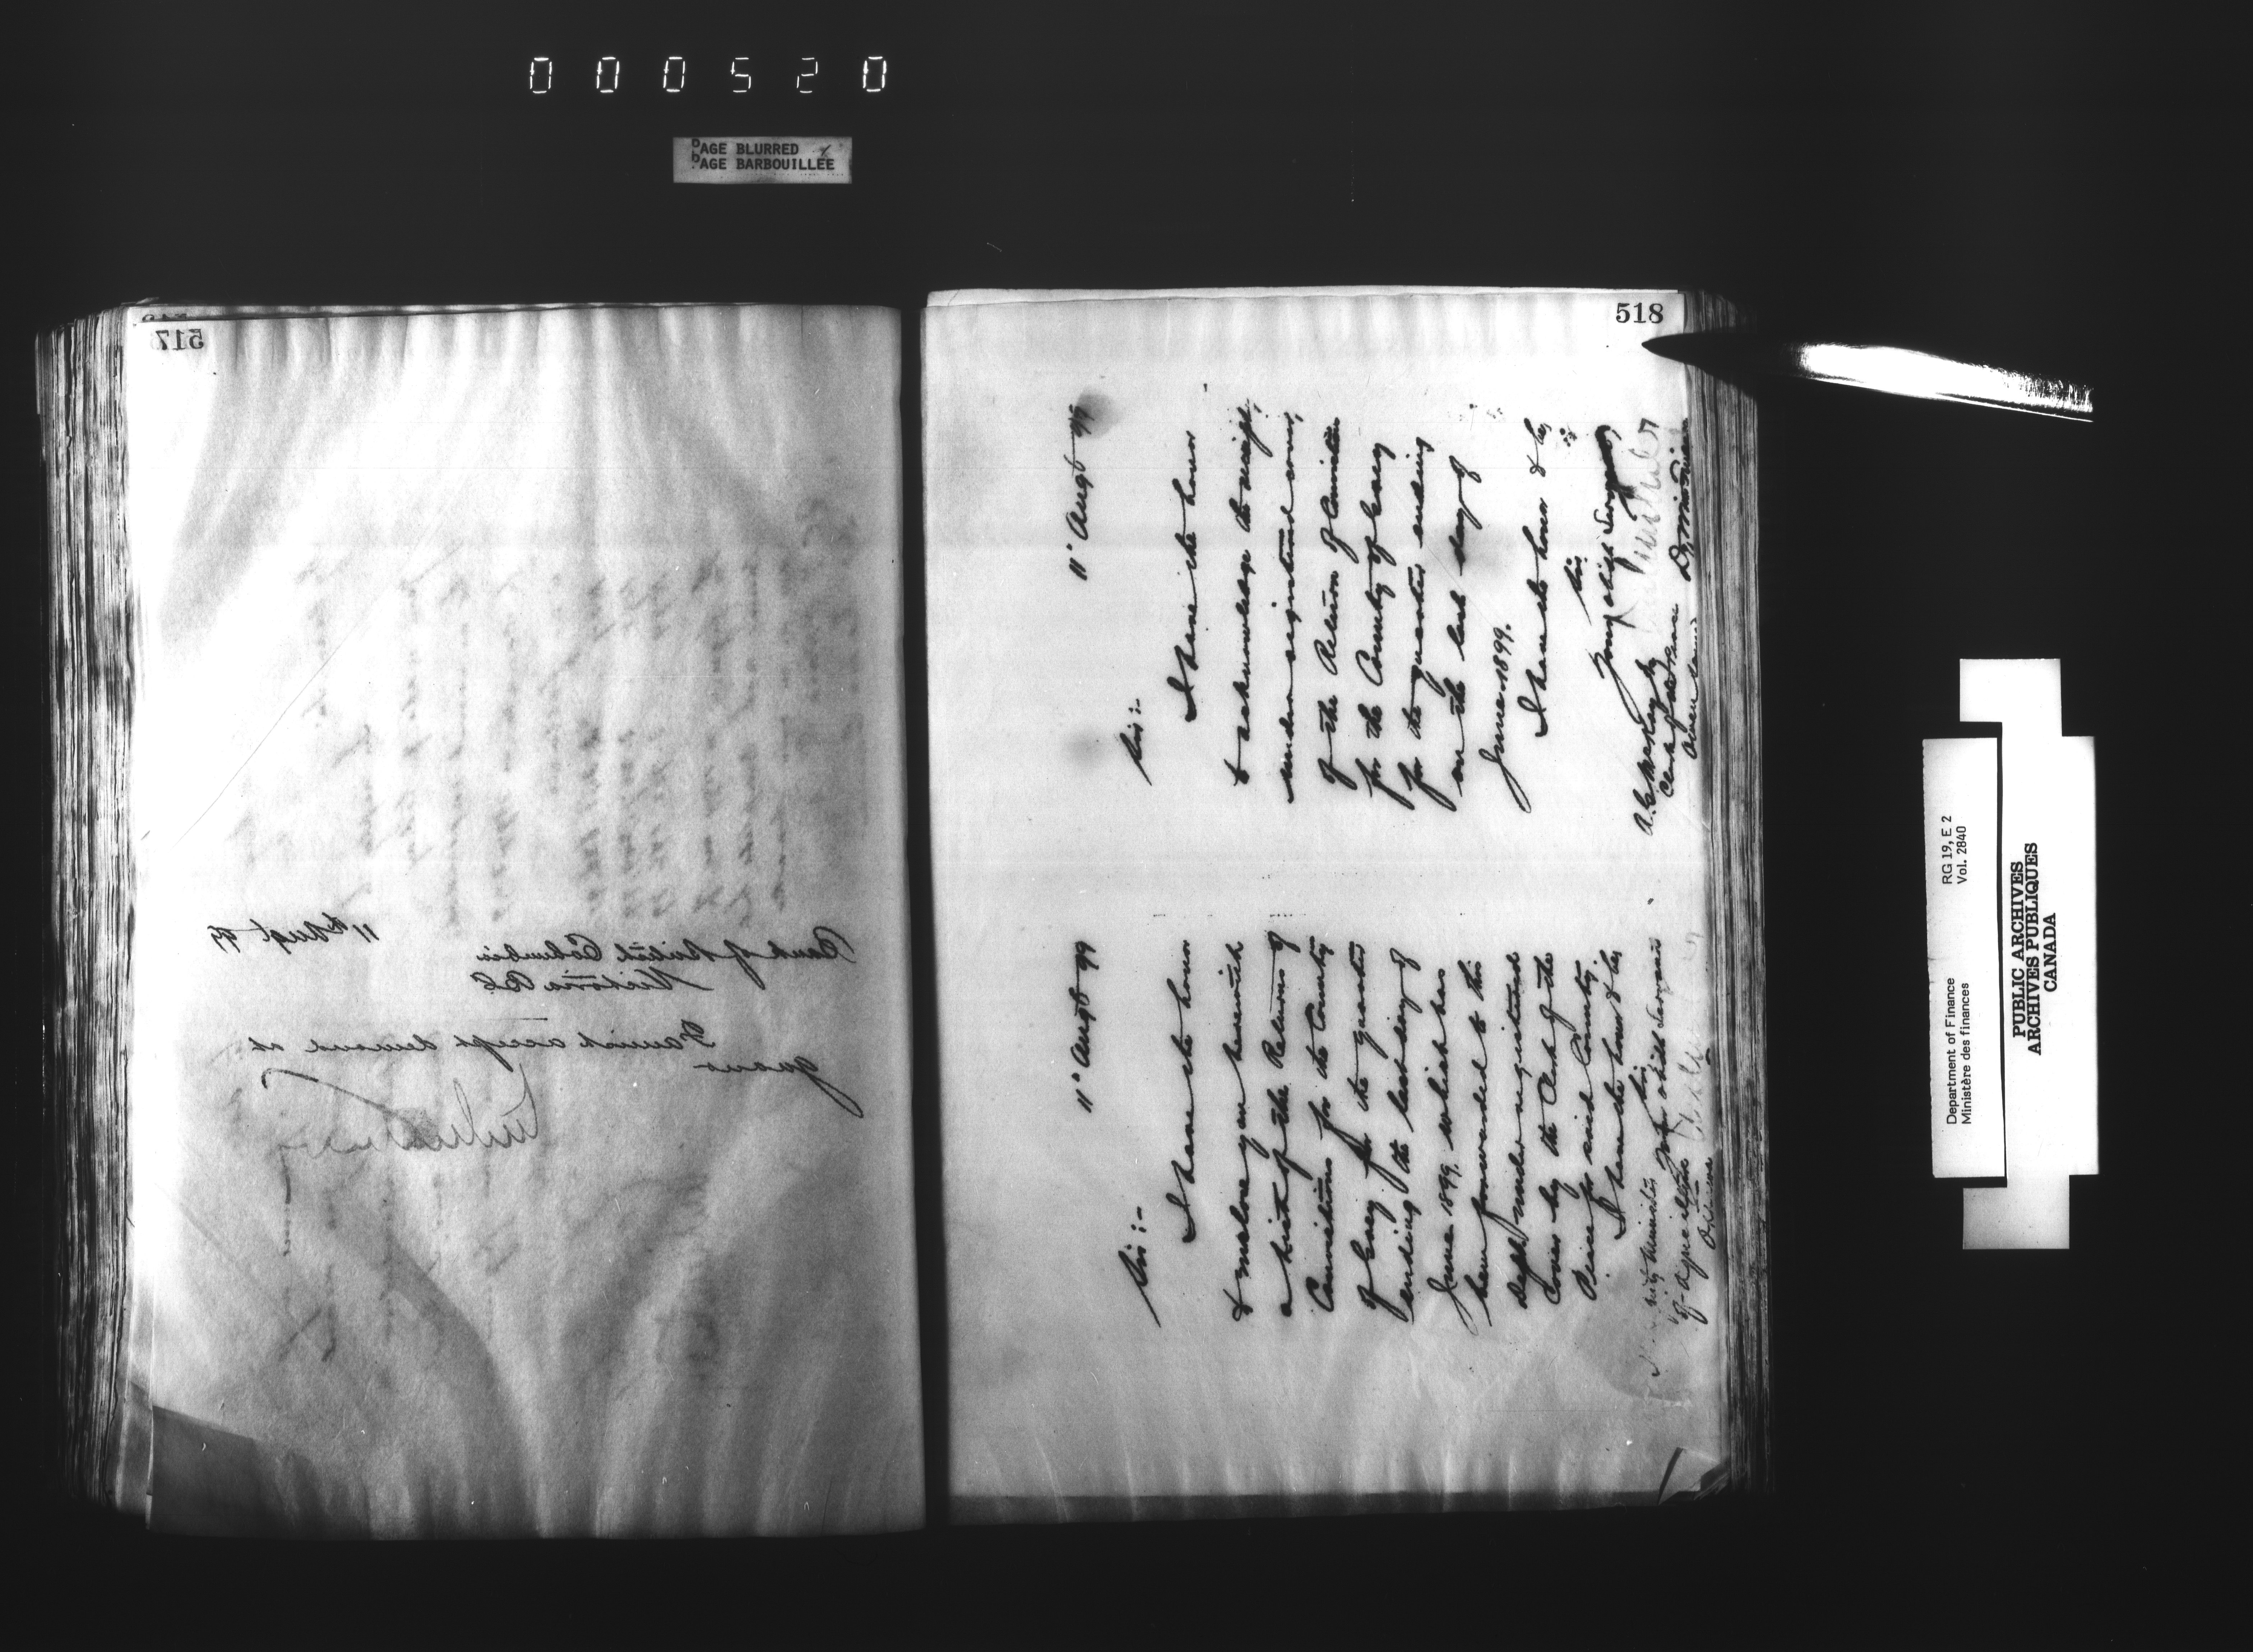 000520
PAGE BLURRED
PAGE BARBOUILLEE
517
11th Augt 99
Bank of British Columbia
Victoria B.C.
accept demand at
518
11' Augt 99
Sir :-
I have the honor
to enclose you herewith
a List of the Returns of
Convictions for the County
of Grey for the quarter
ending the last day of
June 1899, which has
been forwarded to this
Dept under registered
Cover by the Clerk of the
Peace for said County.
I have the honor to be,
Sir,
Your obdt Servant
Deputy Minister
of Agriculture
Ottawa
11' Augt 99
Sir :-
I have the honor
to acknowledge the receipt,
under registered cover,
of the Return of Convictions
for the County of Grey
for the quarter ending
on the last day of
June 1899.
I have the honor to be,
Sir,
Your obdt Servant,
Clerk of the Peace
Owen Sound
Dy Min Finance
Department of Finance
Ministère des finances
RG 19, E 2
Vol. 2840
PUBLIC ARCHIVES
ARCHIVES PUBLIQUES
CANADA